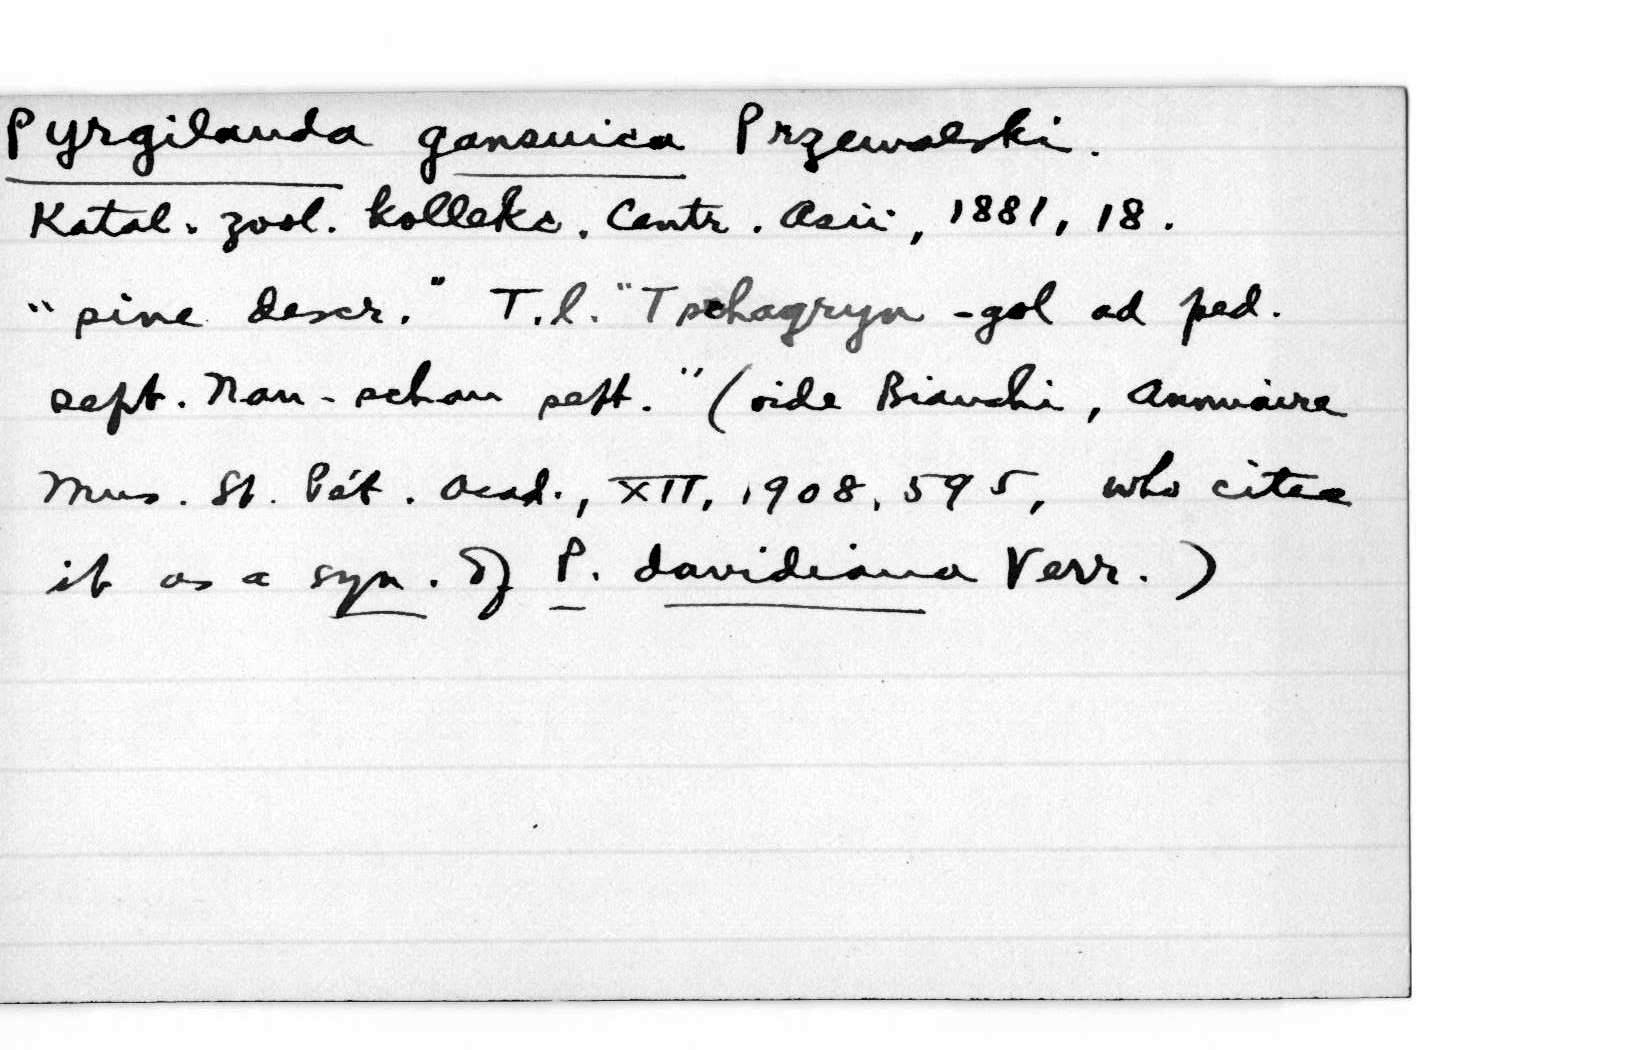 Pyrgilauda gansuica Przewalski.
Katal. zool. kollekc. Centr. Asii, 1881, 18.
"sine descr." T.l. "Tschagryn-gol ad ped.
sept. Nan-schan sept." (vide Bianchi, Annuaire
Mus. St. Pét. Acad., XII, 1908, 595, who cites
it as a syn. of P. davidiana Verr.)